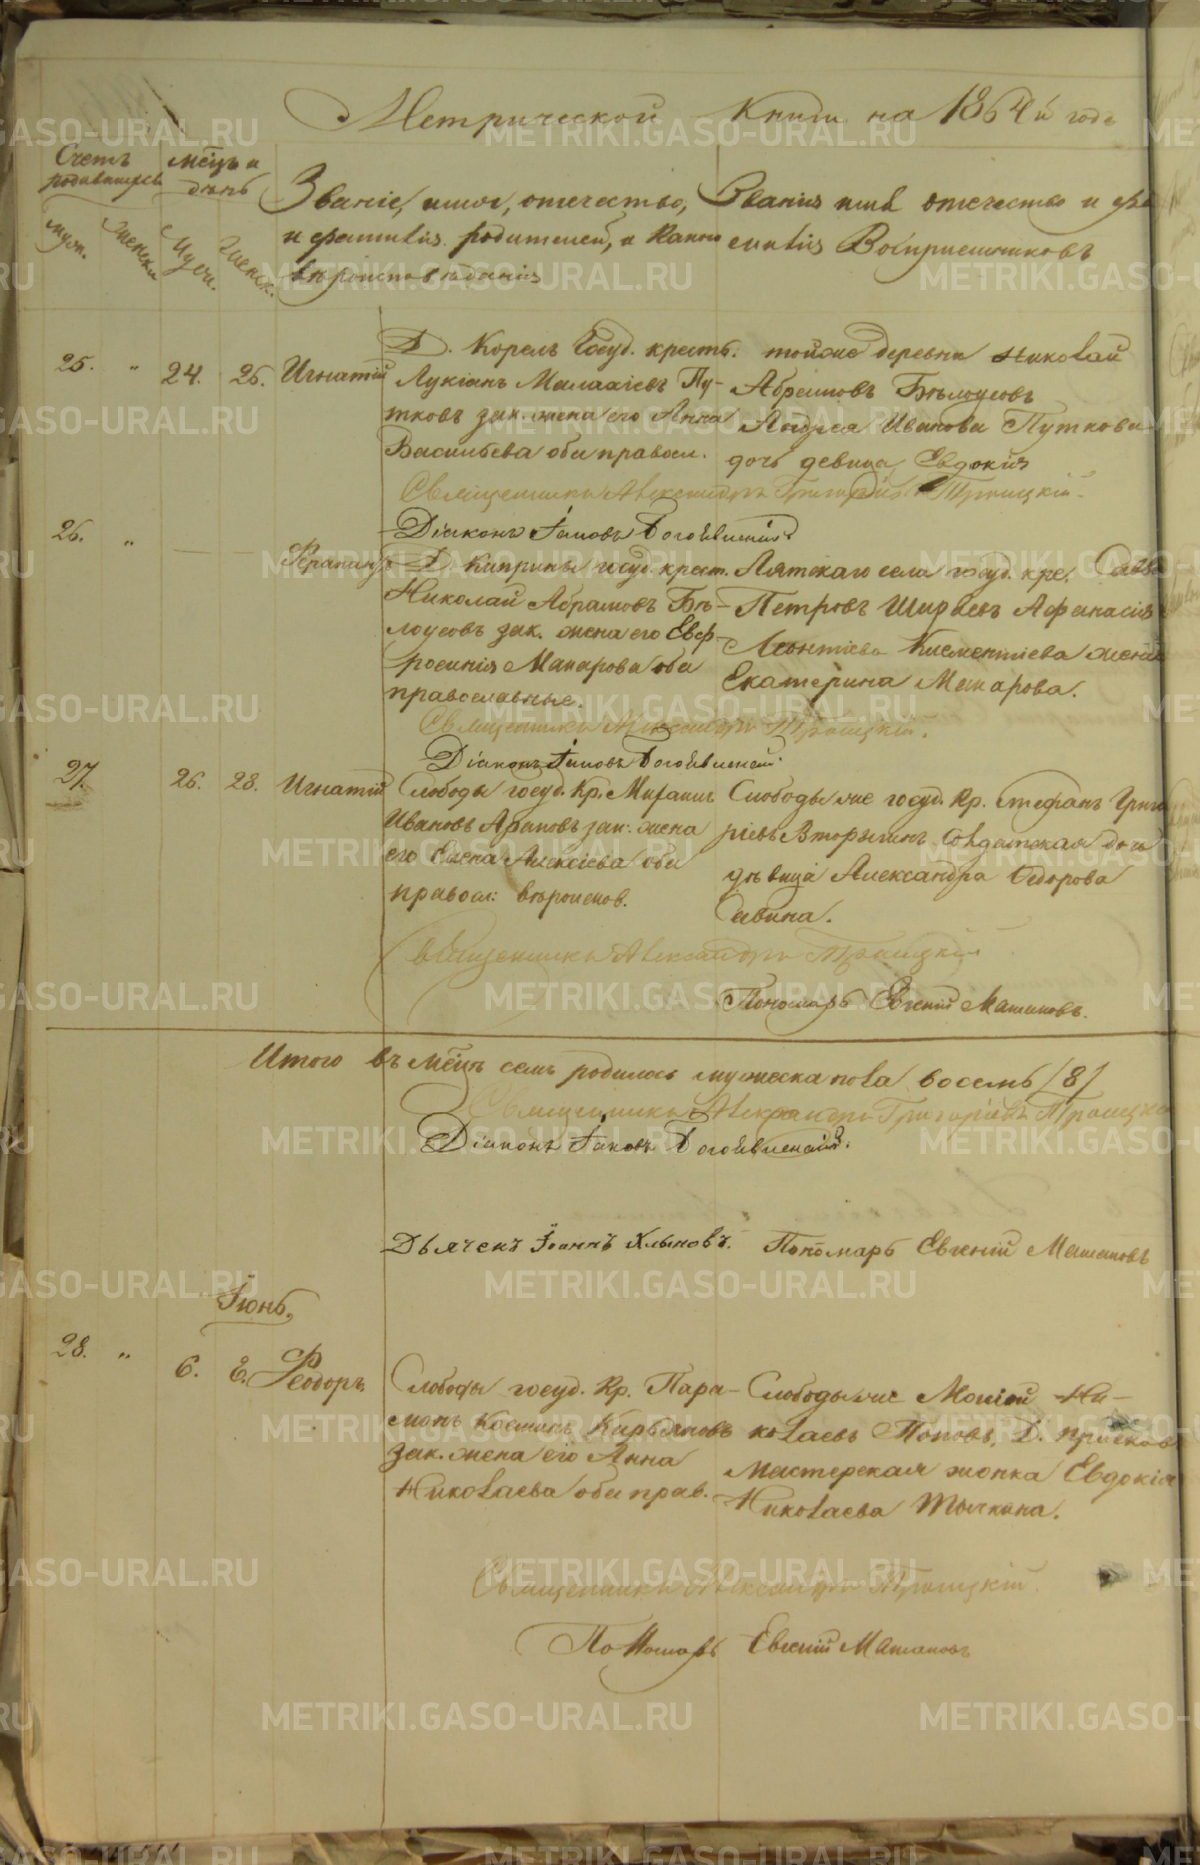 Метрической Книги на 1864й годъ
Счетъ родившихся
Мѣсц и день
муж.
женск.
Мужи.
Женск.
Званіе, имя, отчество,
и фамилія родителей, и какого
вѣроисповѣданія
Званія имя отечество и фа
милія Воспріемниковъ
25. „ 24. 26. Игнатій
Д. Корель Госуд. крестъ.
Лукіанъ Малахіевъ Пу-
тковъ зак. жена его Анна
Васильева оба правосл.
тойже деревни Николай
Абрамовъ Бѣлоусовъ
Андрея Иванова Путкова
дочь девица Евдокія
Священникъ Александръ Григорьевъ Троицкій.
Діаконъ Іаковъ Богоявленскій.
26. „ Ферапонтъ
Д Киприны госуд. крест.
Николай Абрамовъ Бѣ-
лоусовъ зак. жена его Евф-
росинія Макарова оба
православные.
Аятскаго села госуд. кре. Савва
Петровъ Ширяевъ Афанасія
Леонтіева Клементіева жена
Екатерина Макарова.
Священникъ Александръ Троицкій.
Діаконъ Іаковъ Богоявленскій.
27. 26. 28. Игнатій
Слободы госуд. Кр.
Ивановъ Араповъ зак: жена
его Елена Алексіева оба
правосл: вѣроиспов.
Слободы же госуд. Кр. Стефанъ Григо
рьевъ Вторыгинъ Солдатская дочь
дѣвица Александра Федорова
Савина.
Священникъ Александръ Троицкій
Пономарь Евгеній Машановъ.
Итого въ мѣсцъ семъ родилось мужеска пола восемь /8/
Священникъ Александръ Григорьевъ Троицкій
Діаконъ Іаковъ Богоявленскій.
Дьячекъ Іоаннъ Хлыновъ. Пономарь Евгеній Машановъ
Іюнь.
28. „ 6. Ѳеодоръ.
Слободы госуд. Кр. Пара-
монъ Косминъ
зак. жена его Анна
Николаева оба прав.
Слободы же Моисей Ни-
колаевъ Поповъ, Д.
Мастерская жонка Евдокія
Николаева Тычкина.
Священникъ Александръ Троицкій.
Пономарь Евгеній Машановъ
METRIKI.GASO-URAL.RU